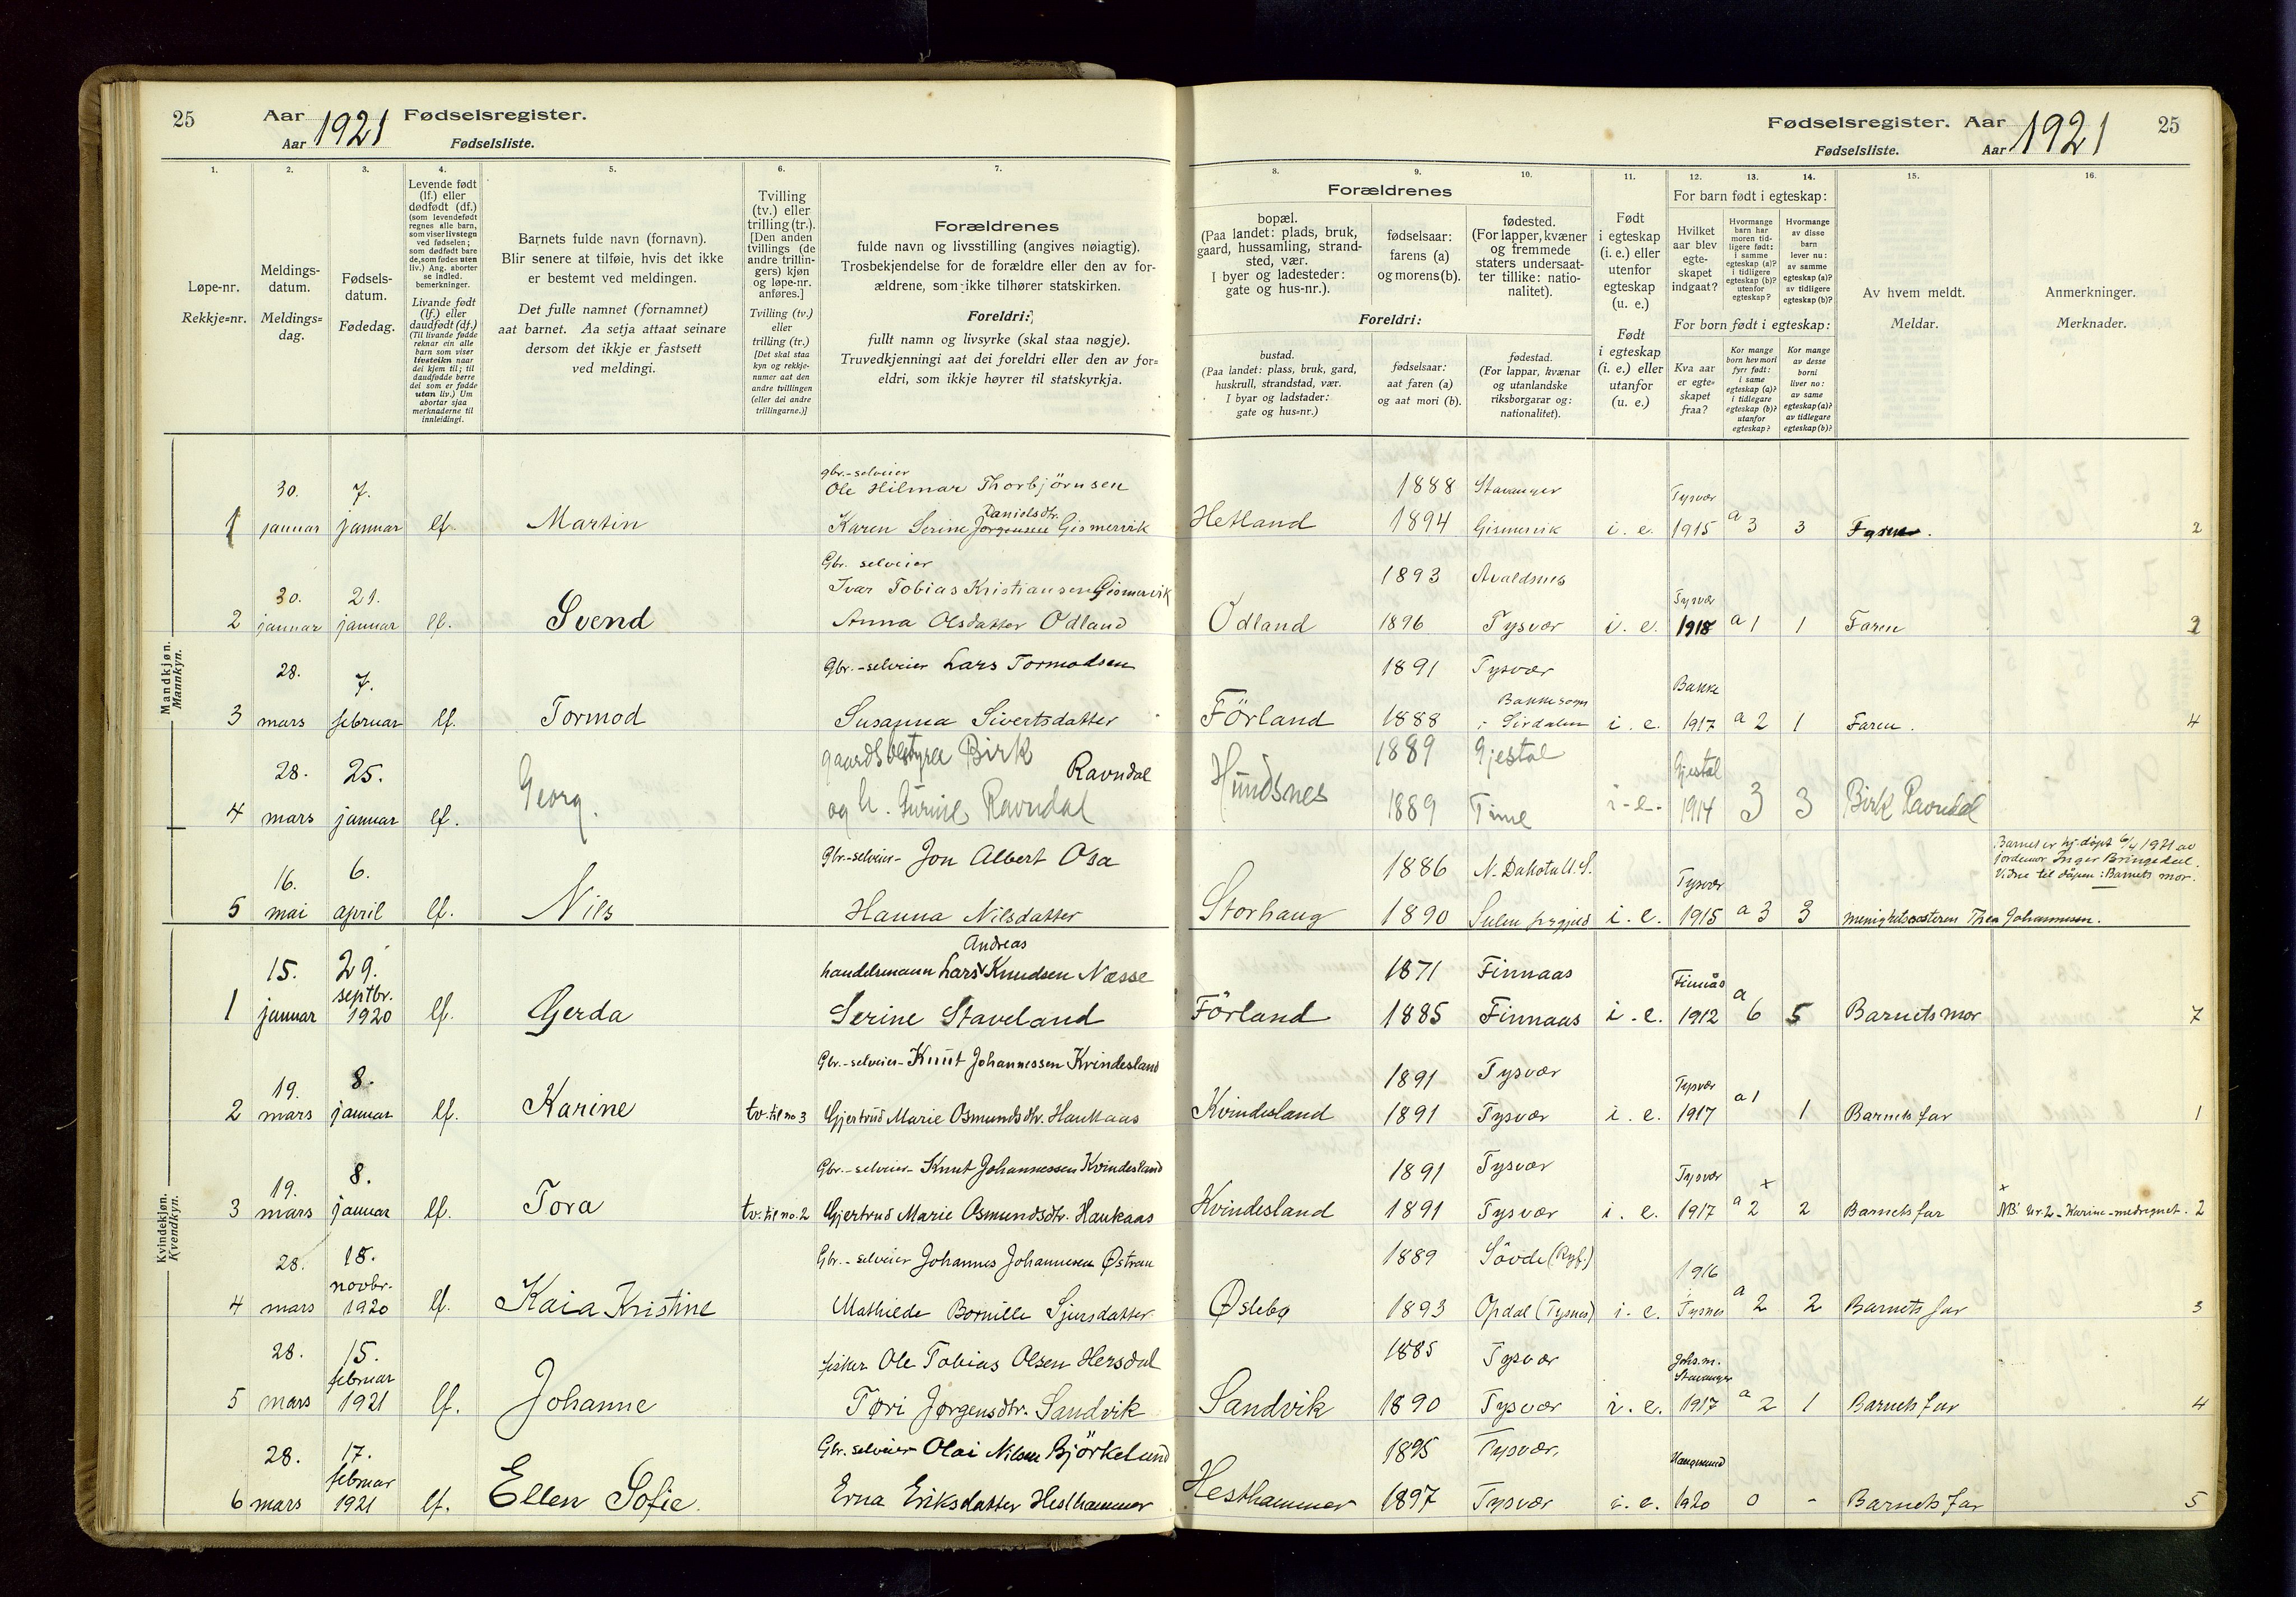 25 Aar 1921 Fødselsregister.
Aar Fødselsliste.
Fødselsregister. Aar 1921 25
Fødselsliste. Aar
1. 2. 3. 4. 5. 6. 7.
Løpe-nr.
Rekkje=nr.
Meldings-
datum.
Meldings=
dag.
Fødsels-
datum.
Fødedag.
Levende født
(lf.) eller
dødfødt (df.)
(som levendefødt
regnes alle barn,
som viser livstegn
ved fødselen;
som dødfødt bare
de, som fødes uten
liv.) Ang. aborter
se indled.
bemerkninger.
Livande født
(lf.) eller
daudfødt (df.)
(Til livande fødde
reknar ein alle
barn som viser
livsteikn naar
dei kjem til; til
daudfødde berre
dei som er fødde
utan liv.) Um
abortar sjaa
merknaderne til
innleidingi.
Barnets fulde navn (fornavn).
Blir senere at tilføie, hvis det ikke
er bestemt ved meldingen.
Det fulle namnet (fornamnet)
aat barnet. Aa setja attaat seinare
dersom det ikkje er fastsett
ved meldingi.
Tvilling
(tv.) eller
trilling (tr.).
[Den anden
tvillings (de
andre trillin-
gers) kjøn
og løpe-nr.
anføres.]
Tvilling (tv.)
eller
trilling (tr.)
[Det skal staa
kyn og rekkje-
numer aat den
andre tvillingen
(eller dei andre
trillingarne.)]
Forældrenes
fulde navn og livsstilling (angives nøiagtig).
Trosbekjendelse for de forældre eller den av for-
ældrene, som ikke tilhører statskirken.
Foreldri:
fullt namn og livsyrke (skal staa nøgje).
Truvedkjenningi aat dei foreldri eller den av for=
eldri, som ikkje høyrer til statskyrkja.
8. 9. 10. 11. 12. 13. 14. 15. 16.
Forældrenes
bopæl.
(Paa landet: plads, bruk,
gaard, hussamling, strand-
sted, vær.
I byer og ladesteder:
gate og hus-nr.).
fødselsaar:
farens (a)
og morens (b).
fødested.
(For lapper, kvæner
og fremmede
staters undersaat-
ter tillike: natio-
nalitet).
Foreldri:
bustad.
(Paa landet: plass, bruk, gard,
huskrull, strandstad, vær.
I byar og ladstader:
gate og hus=nr.)
fødselsaar:
aat faren (a)
og aat mori (b).
fødestad.
(For lappar, kvænar
og utanlandske
riksborgarar og:
nationalitet).
Født
i egteskap
(i. e.) eller
utenfor
egteskap
(u. e.)
Født
i egteskap
(i. e.) eller
utanfor
(u. e.)
For barn født i egteskap:
Hvilket
aar blev
egte-
skapet
indgaat?
Hvormange
barn har
moren tid-
ligere født:
i samme
egteskap (a)?
i tidligere
egteskap (b)?
utenfor
egteskap?
Hvormange
av disse
barn
lever nu:
av samme
egteskap (a)?
av tidligere
egteskap (b)?
For born født i egteskap:
Kva aar
er egte=
skapet
fraa?
Kor mange
born hev mori
fyrr født:
i same
egteskap (a)?
i tidlegare
egteskap (b)?
utanfor
egteskap?
Kor mange
av desse
borni
liver no:
av same
egteskap (a)?
av tidlegare
egteskap (b)?
Av hvem meldt.
Meldar.
Anmerkninger.
Merknader.
Mandkjøn.
Mannkyn.
gbr.-selveier
30. 7. Ole Hilmar Thorbjörnsen 1888 Stavanger Tysvær
Danielsdtr.
1 januar januar lf. Martin Karen Serine Jørgensen Gismervik Hetland 1894 Gismervik i. e. 1915 a 3 3 Faren. 2
Gbr. selveier
30. 21. Ivar Tobias Kristiansen Gismervik 1893 Avaldsnes Tysvær
2 januar januar lf. Svend Anna Olsdatter Ödland Ödland 1896 Tysvær i. e. 1918 a 1 1 Faren
28. 7. Gbr.-selveier Lars Tormodsen 1891 Tysvær Bakke
Bakke sogn
3 mars februar lf. Tormod Susanna Sivertsdatter Förland 1888 i Sirdalen i. e. 1917 a 2 1 Faren. 4
28. 25. gaardsbestyrer Birk Ravndal 1889 Gjestal Gjestal
4 mars januar lf. Georg. og h. Gurine Ravndal Hundsnes 1889 Time i. e. 1914 3 3 Birk Ravndal
16. 6. Gbr.-selveier- Jon Albert Osa 1886 N. Dakota U. S. Tysvær
Barnet er hj. döpt 6/4 1921 av
jordemor Inger Bringedal.
Vidne til dåpen: Barnets mor.
5 mai april lf. Nils Hanna Nilsdatter Storhaug 1890 Sulen prgjeld i. e. 1915 a 3 3 menighetssøsteren Thea Johannessen.
Kvindekjøn.
Kvendkyn.
Andreas
15. 29. handelsmann Lars Knudsen Næsse 1871 Finnaas Finnås
septbr.
1 januar 1920 lf. Gerda Serine Staveland Förland 1885 Finnaas i. e. 1912 a 6 5 Barnets mor 7
19. 8. Gbr.-selveier- Knut Johannessen Kvindesland 1891 Tysvær Tysvær
2 mars januar lf. Karine tv. til no 3 Gjertrud Marie Osmundsdtr. Haukaas Kvindesland 1891 Tysvær i. e. 1917 a 1 1 Barnets far 1
19. 8. Gbr.-selveier- Knut Johannessen Kvindesland 1891 Tysvær Tysvær
3 mars januar lf. Tora tv. til no. 2 Gjertrud Marie Osmundsdtr. Haukaas Kvindesland 1891 Tysvær i. e. 1917 a 2 x 2 Barnets far x NB! nr. 2 - Karine - medregnet. 2
28. 18. Gbr.-selveier Johannes Johannesen Østrau 1889 Sövde (Ryf.) 1916
novbr.
4 mars 1920 lf. Kaia Kristine Mathilde Bornille Sjursdatter Øslebø 1893 Opdal (Tysnes) i. e. Tysnes a 2 2 Barnets far 3
28. 15. fisker Ole Tobias Olsen Hersdal 1885 Tysvær Johs. m.
februar Stavanger
5 mars 1921 lf. Johanne Tøri Jørgensdtr. Sandvik Sandvik 1890 Tysvær i. e. 1917 a 2 1 Barnets far 4
28. 17. Gbr. selveier Olai Nilsen Björkelund 1895 Tysvær. Haugesund
februar
6 mars 1921 lf. Ellen Sofie. Erna Eriksdatter Hesthammer Hesthammer 1897 Tysvær i. e. 1920 0 - Barnets far 5